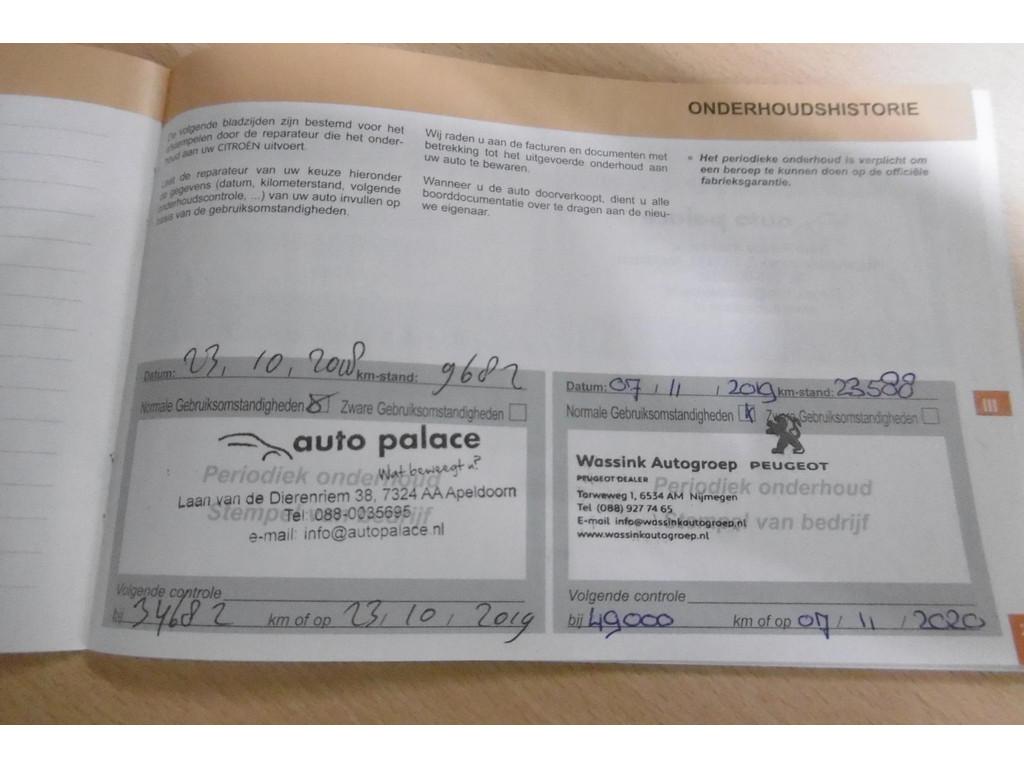 ONDERHOUDSHISTORIE
De volgende bladzijden zijn bestemd voor het
afstempelen door de reparateur die het onder-
houd aan uw CITROËN uitvoert.
de reparateur van uw keuze hieronder
gegevens (datum, kilometerstand, volgende
onderhoudscontrole, ...) van uw auto invullen op
basis van de gebruiksomstandigheden.
Wij raden u aan de facturen en documenten met
betrekking tot het uitgevoerde onderhoud aan
uw auto te bewaren.
Wanneer u de auto doorverkoopt, dient u alle
boorddocumentatie over te dragen aan de nieu-
we eigenaar.
Het periodieke onderhoud is verplicht om
een beroep te kunnen doen op de officiële
fabrieksgarantie.
III
Datum: 23, 10, 2018 km-stand: 9682
Normale Gebruiksomstandigheden Zware Gebruiksomstandigheden
auto palace
Wat beweegt u?
Periodiek onderhoud
Laan van de Dierenriem 38, 7324 AA Apeldoorn
Stempel van bedrijf
Tel: 088-0035695
e-mail: info@autopalace.nl
Volgende controle
bij 34682 km of op 23, 10, 2019
Datum: 07 / 11 / 2019 km-stand: 23588
Normale Gebruiksomstandigheden Zware Gebruiksomstandigheden
Wassink Autogroep PEUGEOT
PEUGEOT DEALER
Periodiek onderhoud
Tarweweg 1, 6534 AM Nijmegen
Tel (088) 927 74 65
E-mail info@wassinkautogroep.nl
Stempel van bedrijf
www.wassinkautogroep.nl
Volgende controle
bij 49000 km of op 07 / 11 / 2020